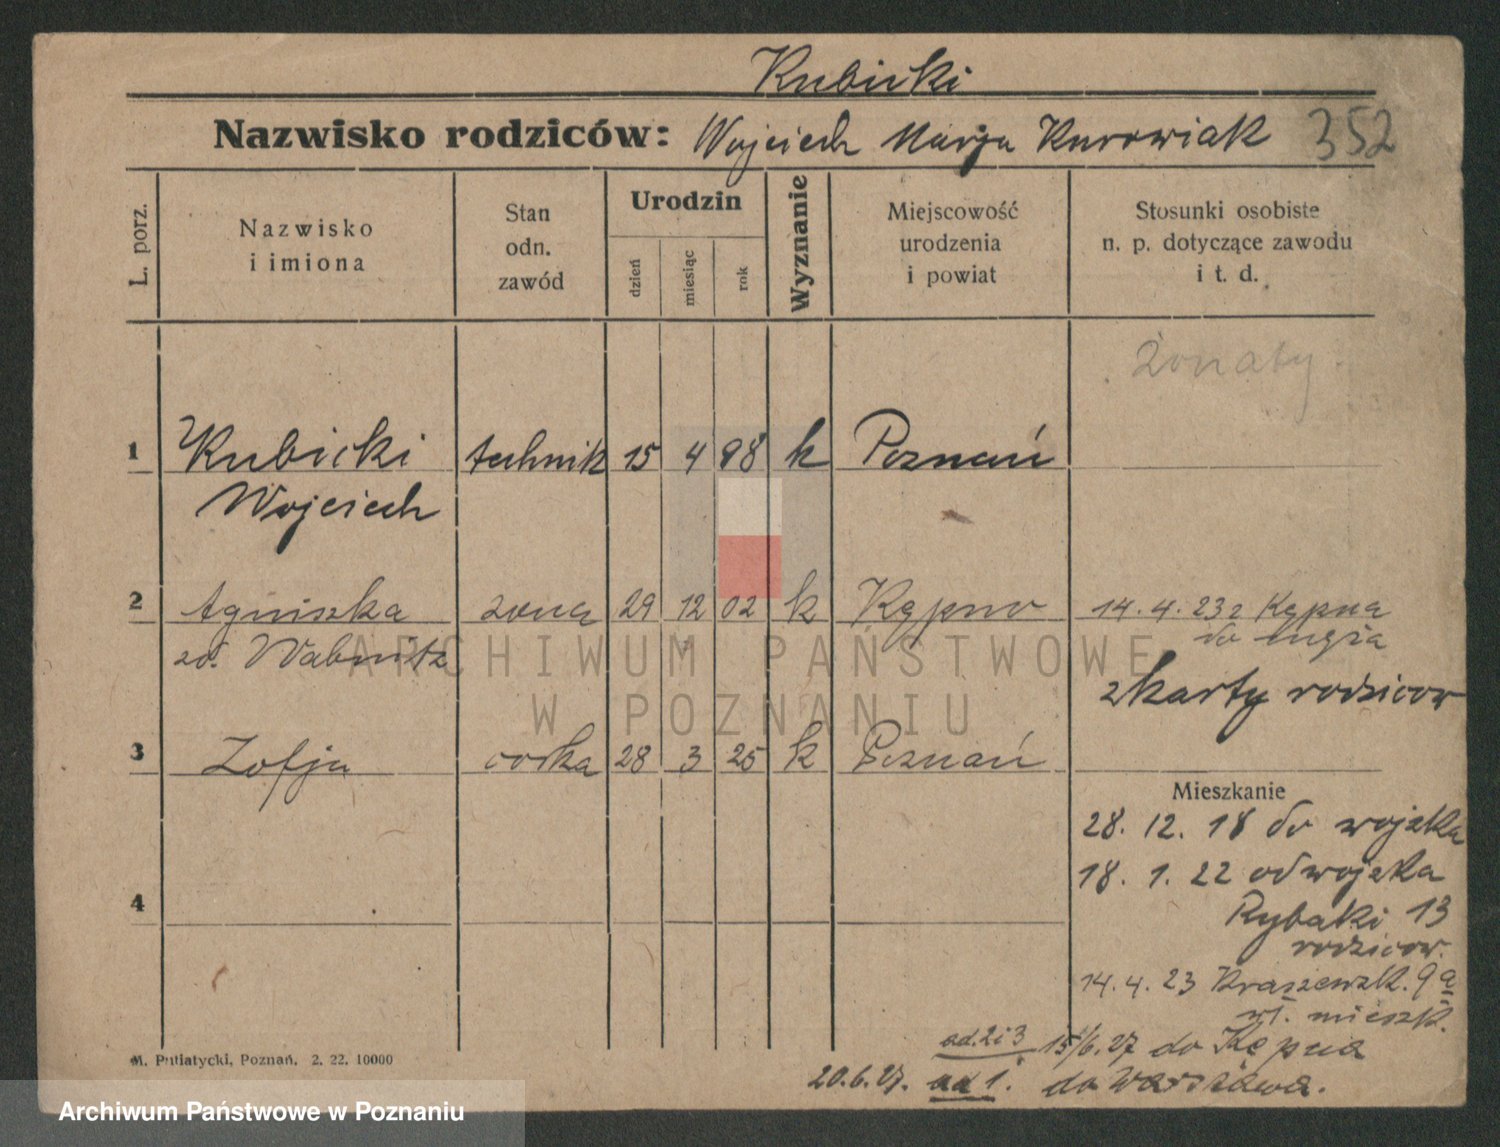 Kubicki
Nazwisko rodziców: Wojciech Marja Kurowiak 352
L. porz.
Nazwisko i imiona
Stan odn. zawód
Urodzin
dzień
miesiąc
rok
Wyznanie
Miejscowość urodzenia i powiat
Stosunki osobiste n. p. dotyczące zawodu i t. d.
żonaty
1 Kubicki technik 15 4 98 k Poznań
Wojciech
2 Agniszka żona 29 12 02 k Kępno 14.4.23 z Kępna
zd. Wabnitz do męża
z karty rodziców
ARCHIWUM PAŃSTWOWE
W POZNANIU
3 Zofja córka 28 3 25 k Poznań
Mieszkanie
28. 12. 18 do wojska
18. 1. 22 od wojska
4
Rybaki 13
rodziców.
14.4.23 Kraszewsk. 9a
wł. mieszk.
ad. 2 i 3 15/6.27 do Kępna
20.6.27. ad 1. do Warszawa.
M. Putiatycki, Poznań. 2. 22. 10000
Archiwum Państwowe w Poznaniu